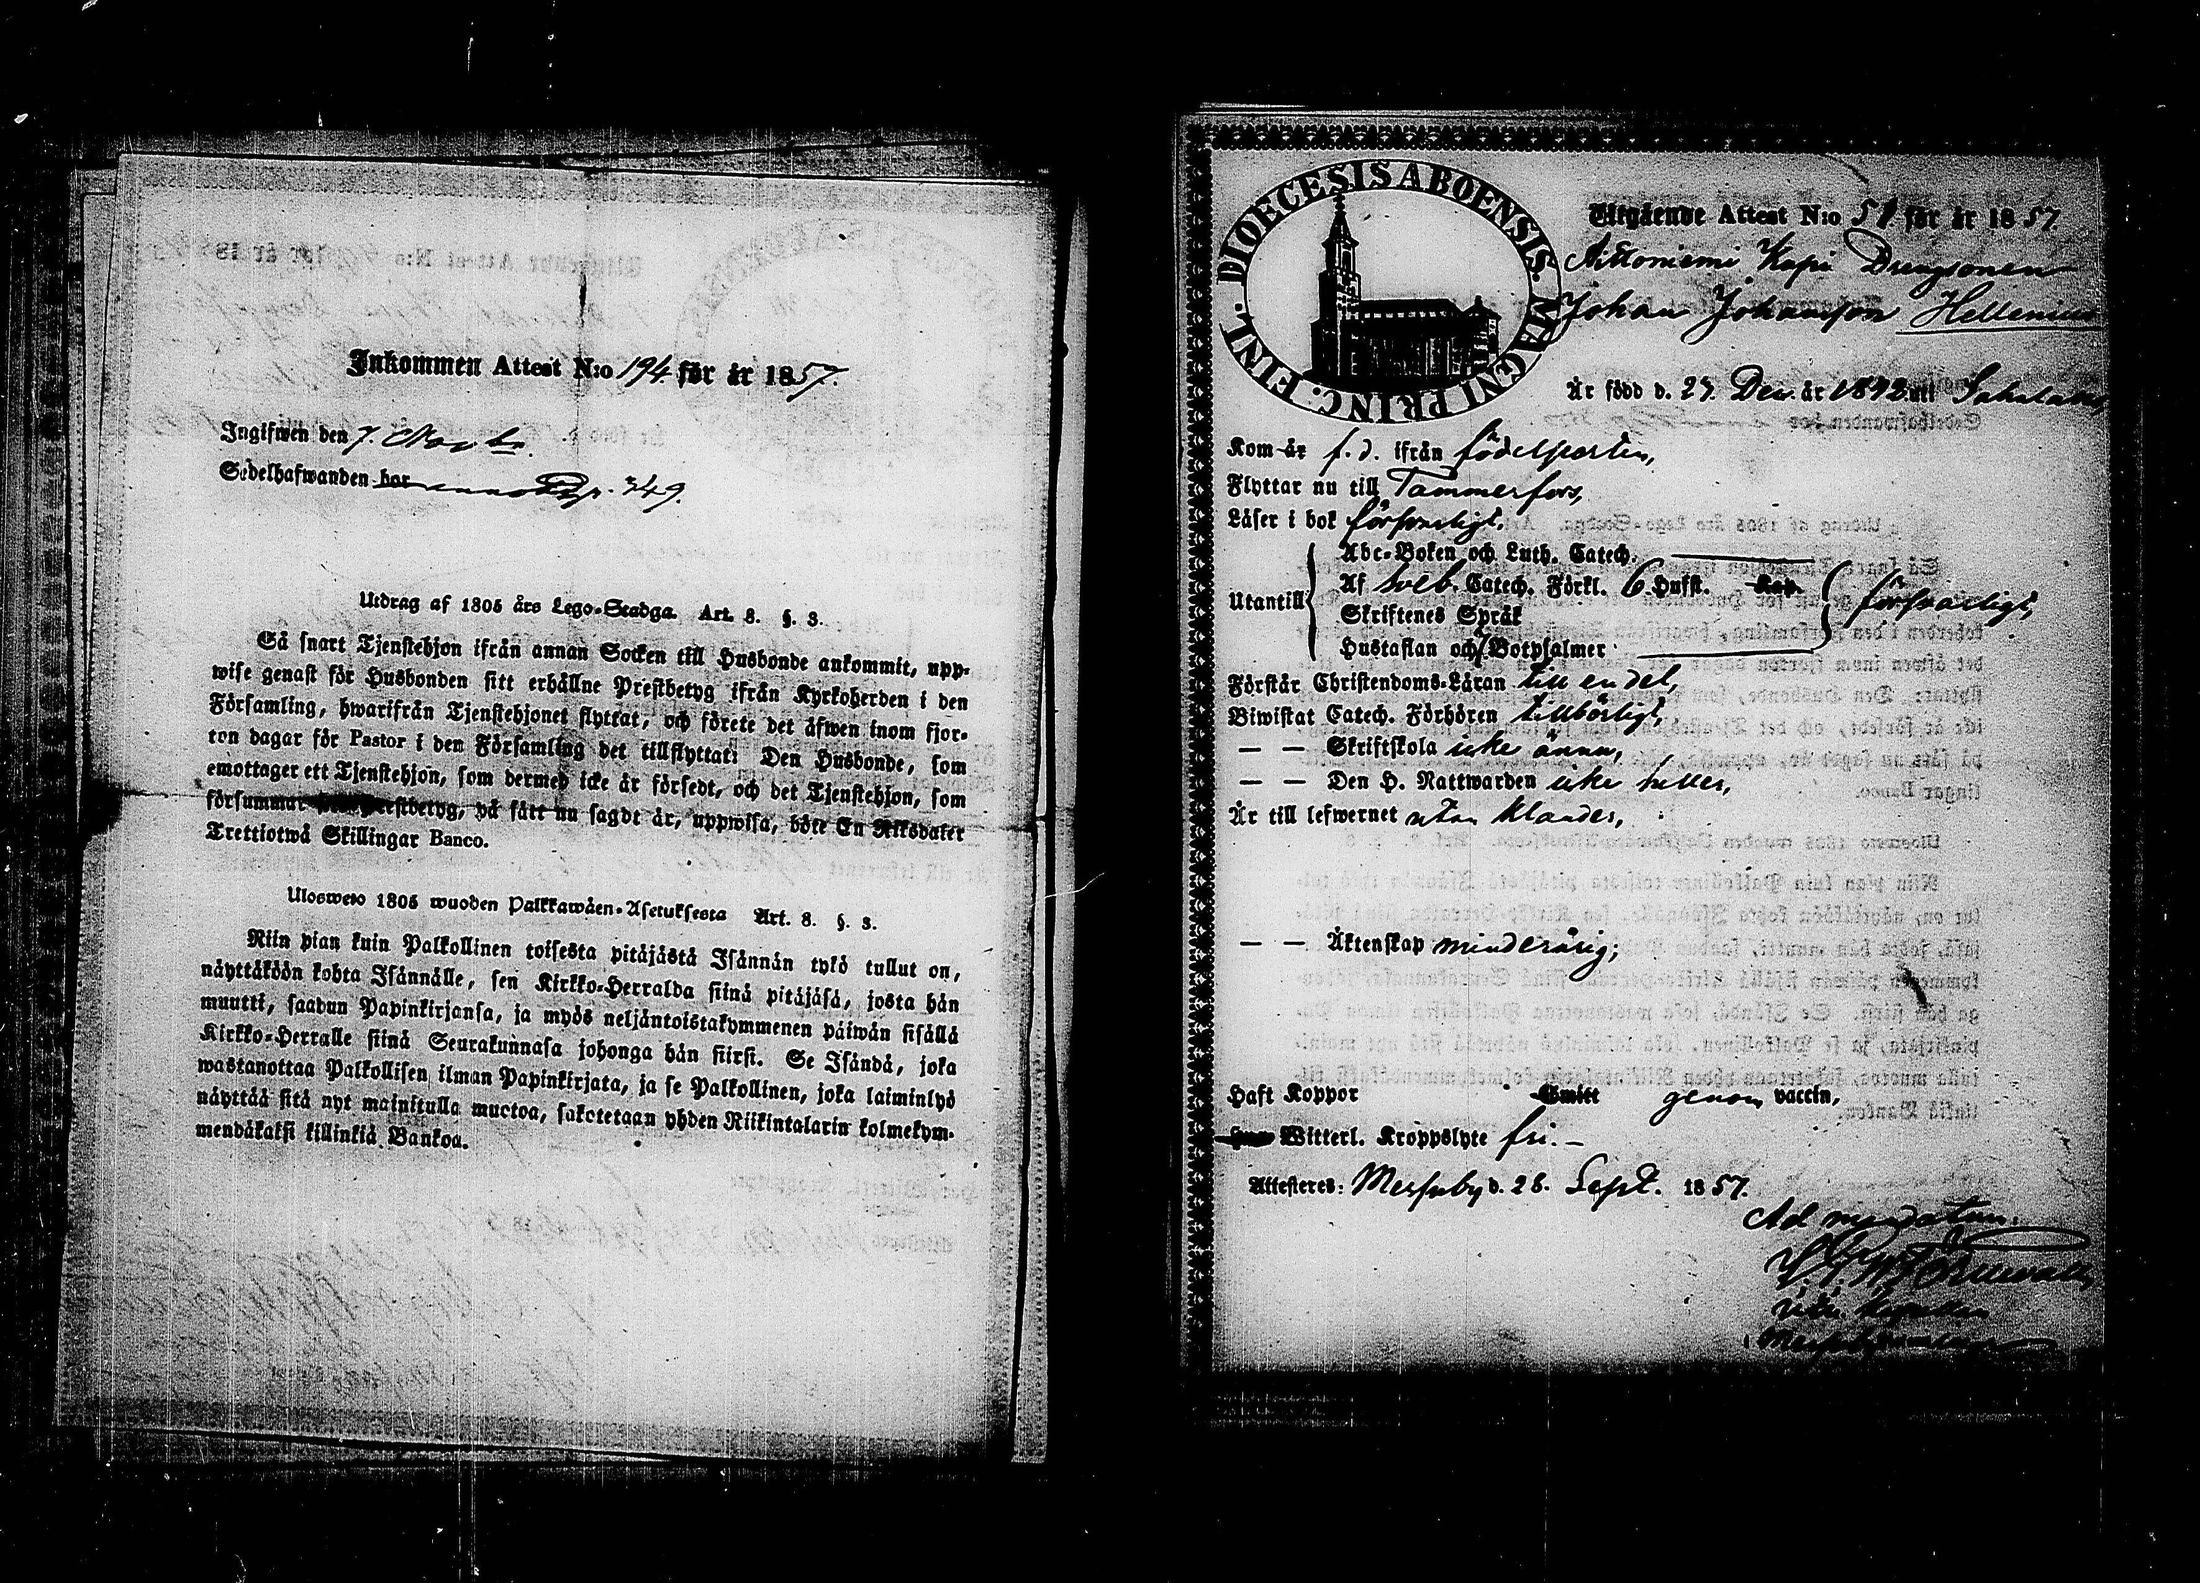 Inkommen Attest N:o 194. för år 1857.
Ingifwen den 7.
Sedelhafwanden har p. 349.
Utdrag af 1805 års Lego-Stadga. Art. 8. §. 3.
Så snart Tjenstehjon ifrån annan Socken till Husbonde ankommit, upp-
wise genast för Husbonden sitt erhållne Prestbetyg ifrån Kyrkoherden i den
Församling, hwarifrån Tjenstehjonet flyttat, och förete det äfwen inom fjor-
ton dagar för Pastor i den Församling det tillflyttat: Den Husbonde, som
emottager ett Tjenstehjon, som dermed icke är försedt, och det Tjenstehjon, som
försummar Prestbetyg, på sätt nu sagdt är, uppwisa, böte En Riksdaler
Trettiotwå Skillingar Banco.
Ulosweto 1805 wuoden Palkkawäen-Asetuksesta Art. 8. §. 3.
Niin pian kuin Palkollinen toisesta pitäjästä Isännän tykö tullut on,
näyttäköön kohta Isännälle, sen Kirkko-Herralda siinä pitäjäsä, josta hän
muutti, saadun Papinkirjansa, ja myös neljäntoistakymmenen päiwän sisällä
Kirkko-Herralle siinä Seurakunnasa johonga hän siirsi. Se Isändä, joka
wastanottaa Palkollisen ilman Papinkirjata, ja se Palkollinen, joka laiminlyö
näyttää sitä nyt mainitulla muotoa, sakotetaan yhden Riikintalarin kolmekym-
mendäkaksi killinkiä Bankoa.
DIOECESIS ABOENSIS. MAGNI PRINC: FINL.
Utgående Attest N:o 51 för år 1857.
Aittoniemi Kapi Drengsonen
Johan Johansson Hellenius
Är född d. 27. Dec. år 1842 uti Sahalax
Kom år f. d. ifrån födelseorten,
Flyttar nu till Tammerfors,
Läser i bok försvarligt.
Utantill
Abc-Boken och Luth. Catech.
Af Sveb. Catech. Förkl. 6 Hufst. Kap. försvarligt,
Skriftenes Språk
Hustaflan och Botpsalmer
Förstår Christendoms-Läran till en del,
Biwistat Catech. Förhören tillbörligt,
— — Skriftskola icke ännu,
— — Den H. Nattwarden icke heller,
Är till lefwernet utan klander,
— — Äktenskap minderårig;
Haft Koppor Smitt genom vaccin,
Witterl. Kroppslyte fri. –
Attesteres: Messuby d. 28. Sept. 1857.
Ad mandatum: